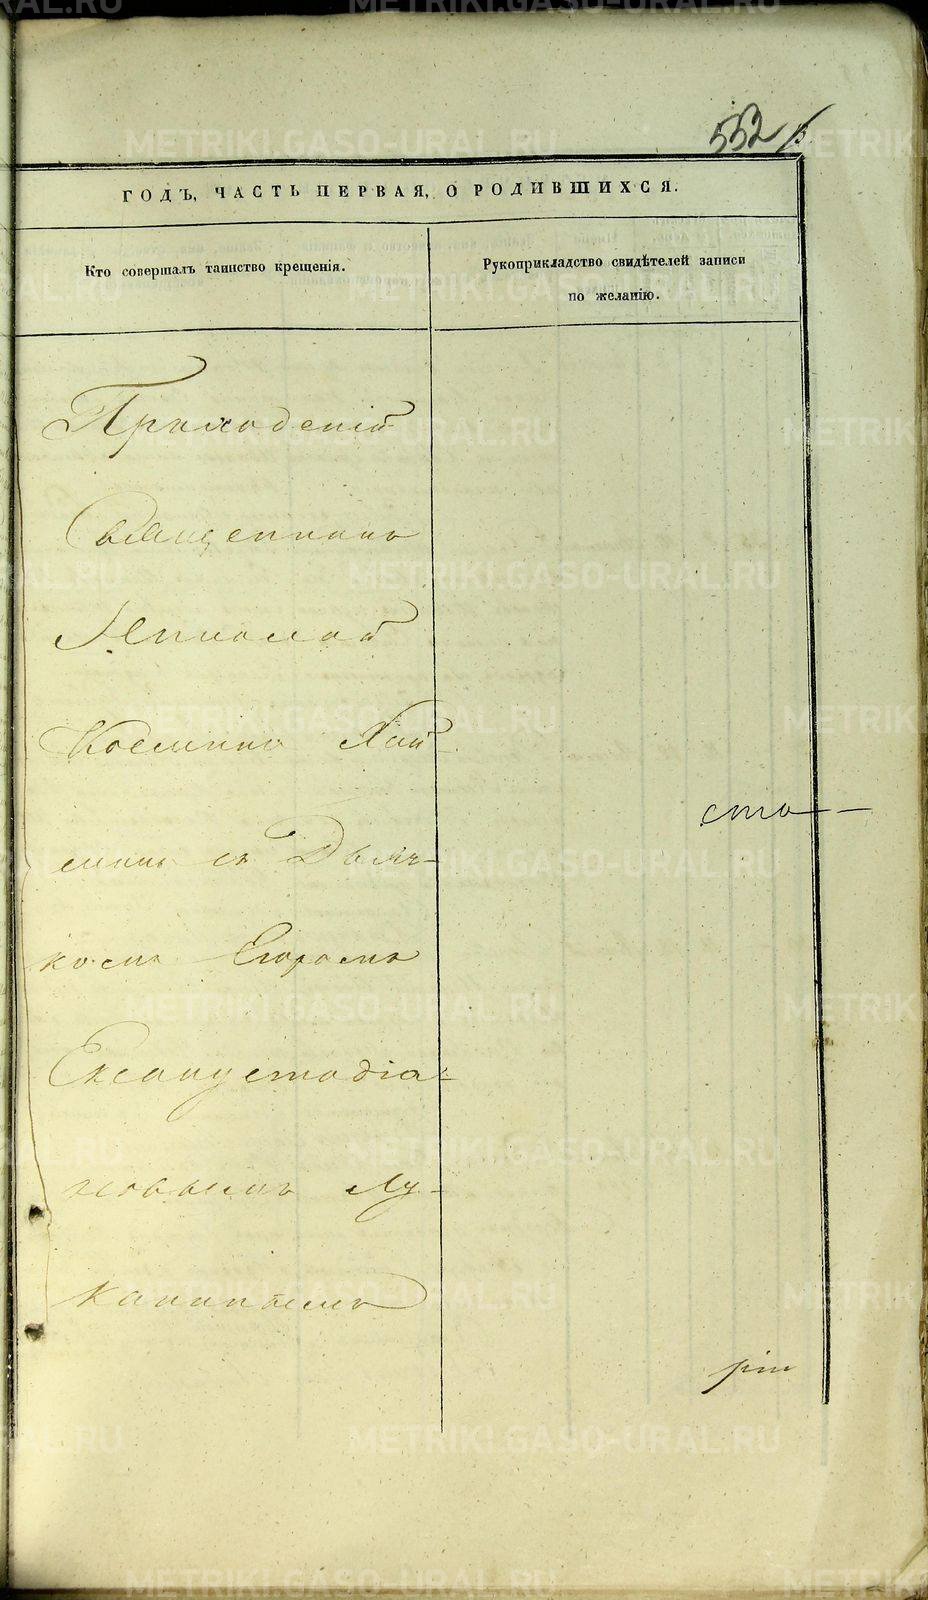 552
ГОДЪ, ЧАСТЬ ПЕРВАЯ, О РОДИВШИХСЯ.
Кто совершалъ таинство крещенія.
Рукоприкладство свидѣтелей записи
по желанію.
Приходскій
Священникъ
Николай
Косминъ
сто-
съ Дьяч-
комъ Егоромъ
Ексакустодіа-
новымъ Лу-
канинымъ
METRIKI.GASO-URAL.RU